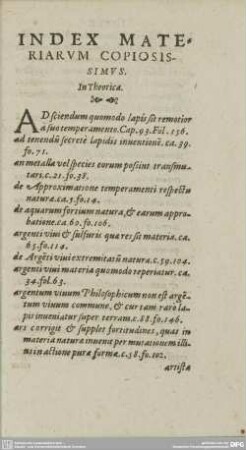 INDEX MATE-
RIARVM COPIOSIS-
SIMVS.
In Theorica.
AD sciendum quomodo lapis sit remotior
a suo temperamento. Cap. 93. Fol. 156.
ad tenendū secretè lapidis inuentionē. ca. 39.
fo. 71.
an metalla vel species eorum possint transmu-
tari. c. 21. fo. 38.
de Approximatione temperamenti respectu
natura. ca. 5. fo. 14.
de aquarum fortium natura, & earum appro-
batione. ca. 60. fo. 106.
argenti viui & sulfuris quæ res sit materia. ca.
63. fo. 114.
de Argēti viui extremitatū natura. c. 59. 104.
argenti viui materia quomodo reperiatur. ca.
34. fol. 63.
argentum viuum Philosophicum non est argē-
tum viuum commune, & cur tam raro la-
pis inueniatur super terram. c. 88. fo. 146.
ars corrigit & supplet fortitudines, quas in
materia natura inuenit per mutationem illi-
us in actione pura formæ. c. 58. fo. 102.
artista